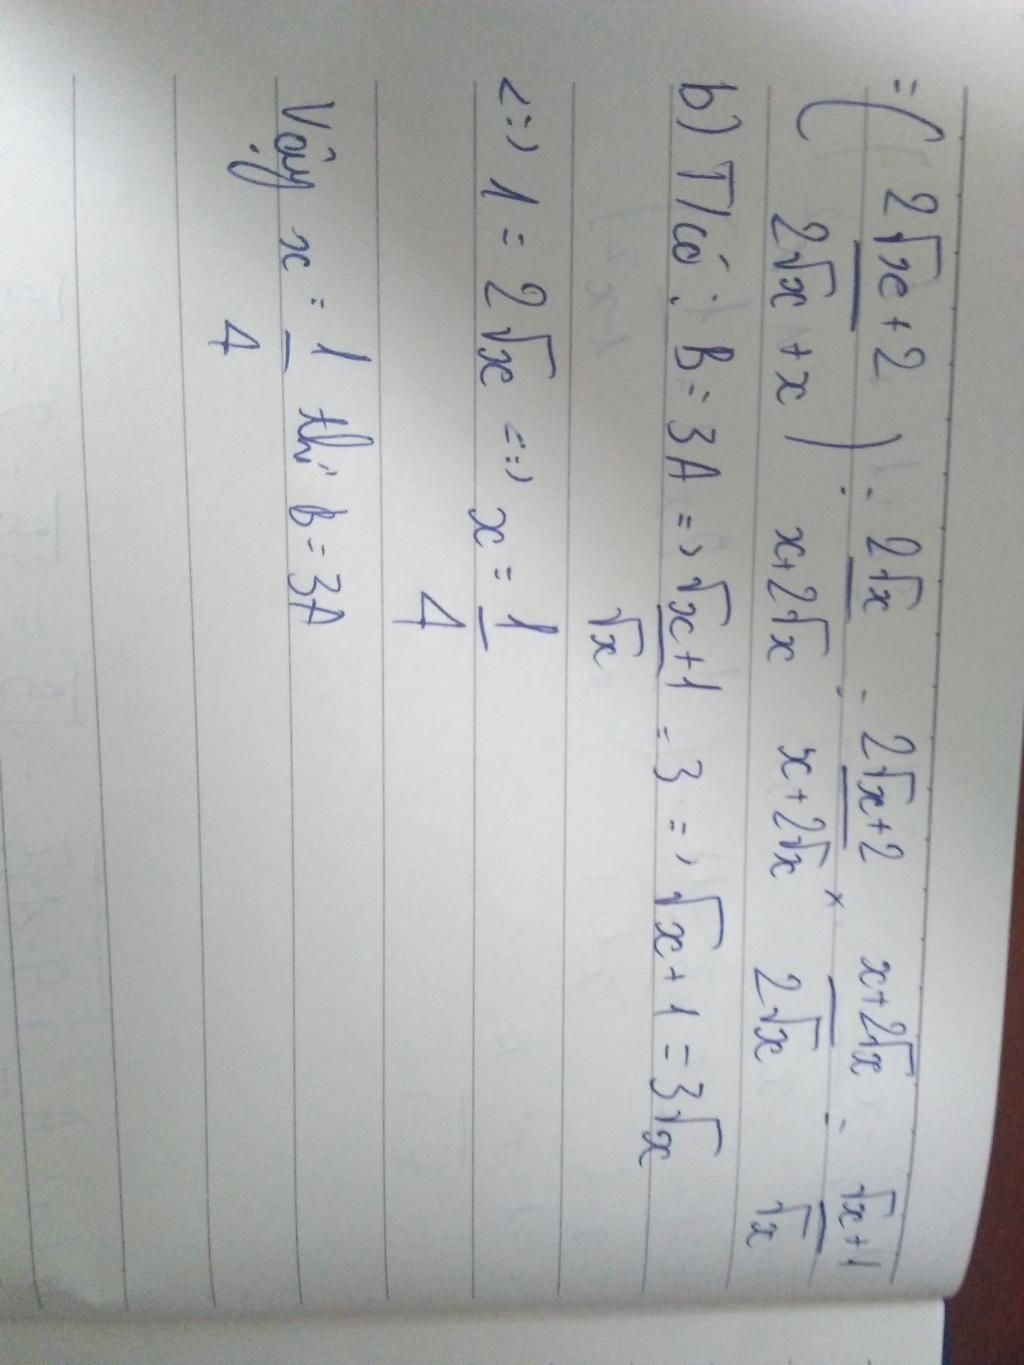 = ( 2√x + 2 / 2√x + x ) : 2√x / x + 2√x = 2√x + 2 / x + 2√x × x + 2√x / 2√x = √x + 1 / √x
b) T/có : B = 3A => √x + 1 / √x = 3 => √x + 1 = 3√x
<=> 1 = 2√x <=> x = 1/4
Vậy x = 1/4 thì B = 3A